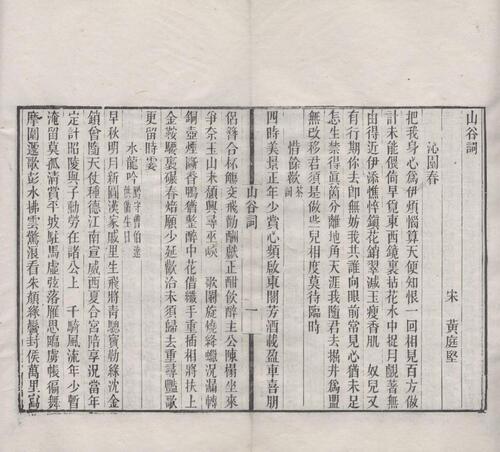 山谷詞
宋 黃庭堅
沁園春
把我身心爲伊煩惱算天便知恨一回相見百方做
計未能偎倚早覓東西鏡裏拈花水中捉月覷著無
由得近伊添憔悴鎮花銷翠減玉瘦香肌 奴兒又
有行期你去即無妨我共誰向眼前常見心猶未足
怎生禁得眞箇分離地角天涯我隨君去掘井爲盟
無改移君須是做些兒相度莫待臨時
惜餘歡 茶詞
四時美景正年少賞心頻啟東閣芳酒載盈車喜朋
山谷詞 一
侶簪合杯觴交飛勸酬獻正酣飲醉主公陳榻坐來
爭奈玉山未頹興尋巫峽 歌闌旋燒絳蠟況漏轉
銅壺煙斷香鴨猶整醉中花借纖手重插相將扶上
金鞍騕褭碾春焙願少延歡洽未須歸去重尋豔歌
更留時霎
水龍吟 黔守曹伯達供備生日
早秋明月新圓漢家戚里生飛將青驄寶勒綠沈金
鎖曾隨天仗種德江南宣威西夏合宮陪享況當年
定計昭陵與子勳勞在諸公上 千騎風流年少暫
淹留莫孤清賞平坡駐馬虛弦落雁思臨虜帳徧舞
摩圍遞歌彭水拂雲驚浪看朱顏綠鬢封侯萬里寫